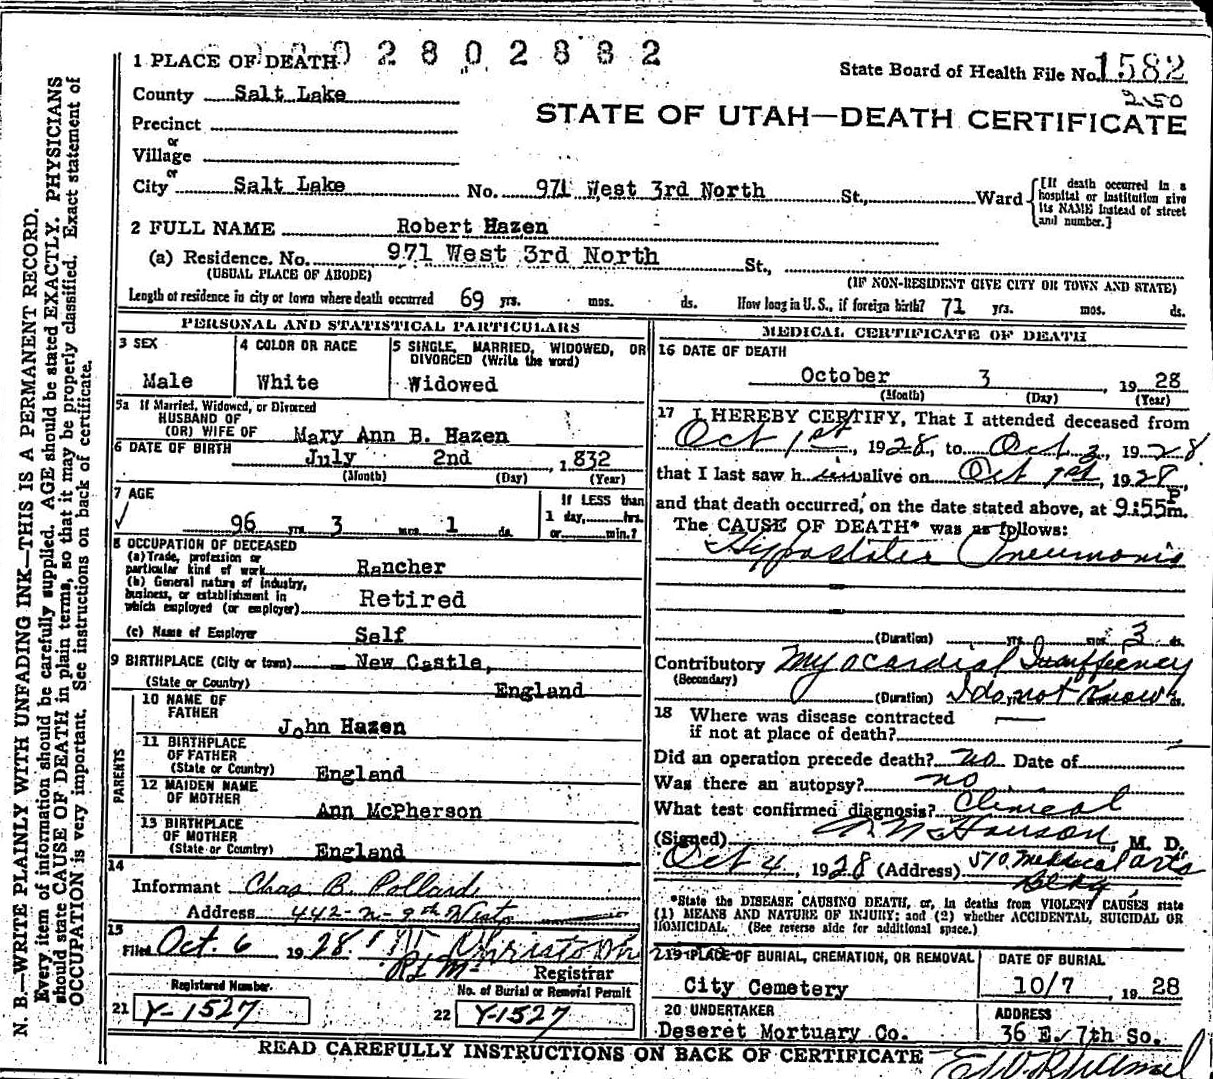 N. B.—WRITE PLAINLY WITH UNFADING INK—THIS IS A PERMANENT RECORD.
Every item of information should be carefully supplied. AGE should be stated EXACTLY. PHYSICIANS
should state CAUSE OF DEATH in plain terms, so that it may be properly classified. Exact statement of
OCCUPATION is very important. See instructions on back of certificate.
2802882
1 PLACE OF DEATH
State Board of Health File No. 1582
County Salt Lake
250
STATE OF UTAH—DEATH CERTIFICATE
Precinct
or
Village
or
City Salt Lake No. 971 West 3rd North St., Ward
[If death occurred in a
hospital or institution give
its NAME instead of street
and number.]
2 FULL NAME Robert Hazen
(a) Residence. No. 971 West 3rd North St.,
(USUAL PLACE OF ABODE) (IF NON-RESIDENT GIVE CITY OR TOWN AND STATE)
Length of residence in city or town where death occurred 69 yrs. mos. ds. How long in U.S., if foreign birth? 71 yrs. mos. ds.
PERSONAL AND STATISTICAL PARTICULARS
3 SEX
Male
4 COLOR OR RACE
White
5 SINGLE, MARRIED, WIDOWED, OR
DIVORCED (Write the word)
Widowed
5a If Married, Widowed, or Divorced
HUSBAND OF
(OR) WIFE OF Mary Ann B. Hazen
6 DATE OF BIRTH July 2nd, 1832
(Month) (Day) (Year)
7 AGE
√ 96 yrs. 3 mos. 1 ds.
If LESS than
1 day, hrs.
or min.?
8 OCCUPATION OF DECEASED
(a) Trade, profession or
particular kind of work Rancher
(b) General nature of industry,
business, or establishment in
which employed (or employer) Retired
(c) Name of Employer Self
9 BIRTHPLACE (City or town) New Castle,
(State or Country) England
PARENTS
10 NAME OF
FATHER John Hazen
11 BIRTHPLACE
OF FATHER
(State or Country) England
12 MAIDEN NAME
OF MOTHER Ann McPherson
13 BIRTHPLACE
OF MOTHER
(State or Country) England
14
Informant Chas B. Pollard
Address 442-N-9th West
15
Filed Oct. 6 1928
Registrar
Registered Number.
21 Y-1527
No. of Burial or Removal Permit
22 Y-1527
MEDICAL CERTIFICATE OF DEATH
16 DATE OF DEATH
October 3, 1928
(Month) (Day) (Year)
17 I HEREBY CERTIFY, That I attended deceased from
Oct 1st, 1928, to Oct 3, 1928
that I last saw him alive on Oct 1st, 1928,
and that death occurred, on the date stated above, at 9:55 P m.
The CAUSE OF DEATH* was as follows:
Hypostatic Pneumonia
(Duration) yrs. mos. 3 ds.
Contributory Myocardial Insufficiency
(Secondary)
(Duration) I do not know ds.
18 Where was disease contracted
if not at place of death?
Did an operation precede death? no Date of
Was there an autopsy? no
What test confirmed diagnosis? Clinical
(Signed) Hanson, M. D.
Oct 4, 1928 (Address) 510 Medical Arts
Bldg
*State the DISEASE CAUSING DEATH, or, in deaths from VIOLENT CAUSES state
(1) MEANS AND NATURE OF INJURY; and (2) whether ACCIDENTAL, SUICIDAL OR
HOMICIDAL. (See reverse side for additional space.)
19 PLACE OF BURIAL, CREMATION, OR REMOVAL
City Cemetery
DATE OF BURIAL
10/7, 1928
20 UNDERTAKER
Deseret Mortuary Co.
ADDRESS
36 E. 7th So.
READ CAREFULLY INSTRUCTIONS ON BACK OF CERTIFICATE